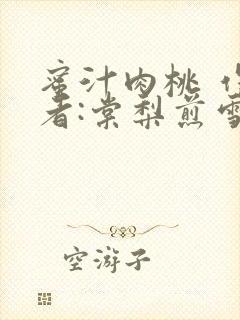 蜜汁肉桃 作
者:棠梨煎雪
空游子